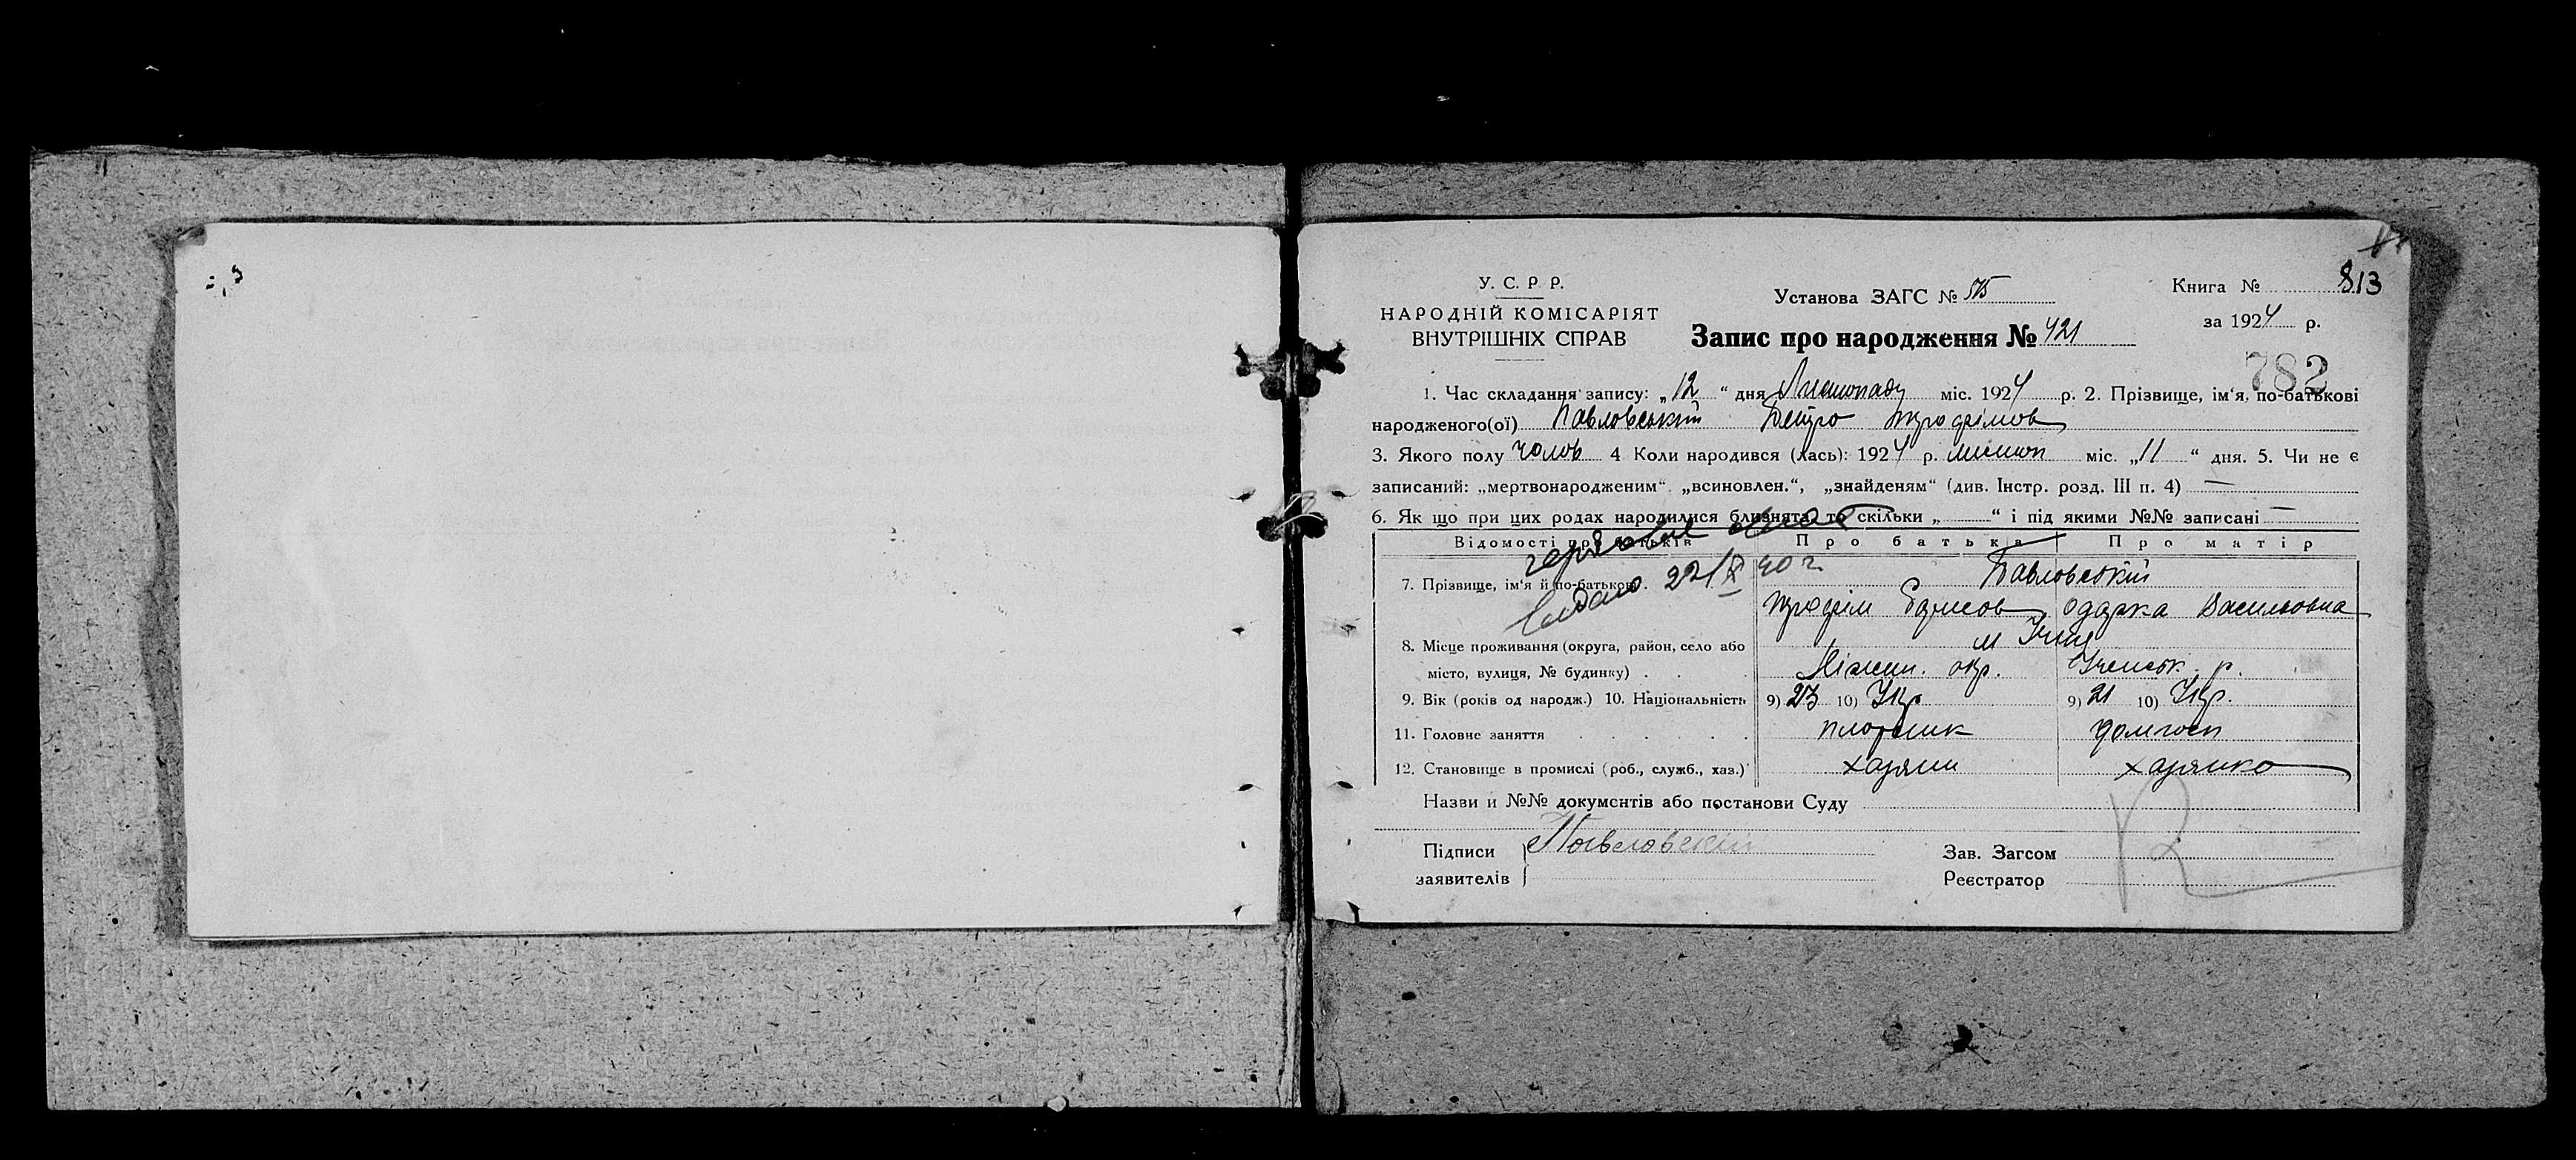 813
У. С. Р. Р.
НАРОДНІЙ КОМІСАРІЯТ
ВНУТРІШНІХ СПРАВ
Установа ЗАГС № 515
Книга №
Запис про народження № 421
за 1924 р.
782
1. Час складання запису: „12“ дня Листопаду міс. 1924 р. 2. Прізвище, ім'я, по-батькові
народженого(ої) Павловський Петро Трофімов
3. Якого полу чолов 4 Коли народився (лась): 1924 р. листоп міс. „11“ дня. 5. Чи не є
записаний: „мертвонародженим“, „всиновлен.“, „знайденям“ (див. Інстр. розд. III п. 4) —
6. Як що при цих родах народилися близнята, то скільки „ “ і під якими №№ записані —
Відомості про батьків Про батька Про матір
7. Прізвище, ім'я й по-батькові. Павловські
видано 22/X 40 г.
Трофім Борисов Одарка Васильовна
8. Місце проживання (округа, район, село або м Ічня
місто, вулиця, № будинку) . . . Ніжин. окр. Іченськ. р.
9. Вік (років од народж.) 10. Національність 9) 23 10) Укр 9) 21 10) Укр.
11. Головне заняття . . . . . плотник домгосп
12. Становище в промислі (роб., служб., хаз.) хазяин хазяйка
Назви и №№ документів або постанови Суду
Підписи Павловский
Зав. Загсом
заявителів
Реєстратор